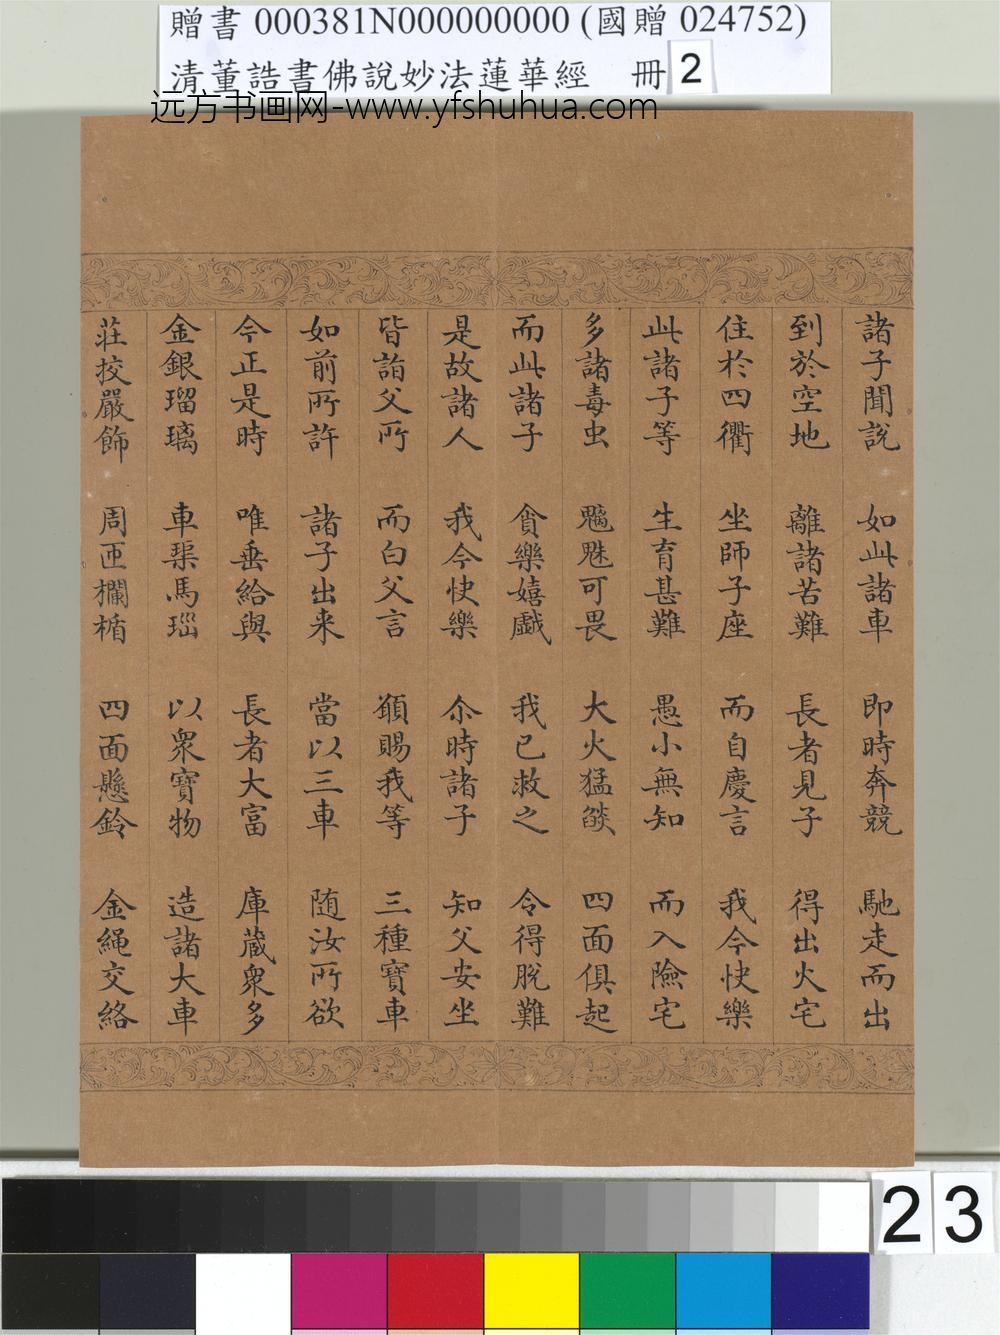 贈書 000381N000000000 (國贈 024752)
清董誥書佛說妙法蓮華經 冊 2
远方书画网-www.yfshuhua.com
諸子聞說 如此諸車 即時奔競 馳走而出
到於空地 離諸苦難 長者見子 得出火宅
住於四衢 坐師子座 而自慶言 我今快樂
此諸子等 生育甚難 愚小無知 而入險宅
多諸毒虫 魑魅可畏 大火猛燄 四面俱起
而此諸子 貪樂嬉戯 我已救之 令得脫難
是故諸人 我今快樂 尒時諸子 知父安坐
皆詣父所 而白父言 願賜我等 三種寶車
如前所許 諸子出来 當以三車 随汝所欲
今正是時 唯垂給與 長者大富 庫蔵衆多
金銀瑠璃 車𤦲馬瑙 以衆寶物 造諸大車
莊挍嚴飾 周匝欄楯 四面懸鈴 金繩交絡
23